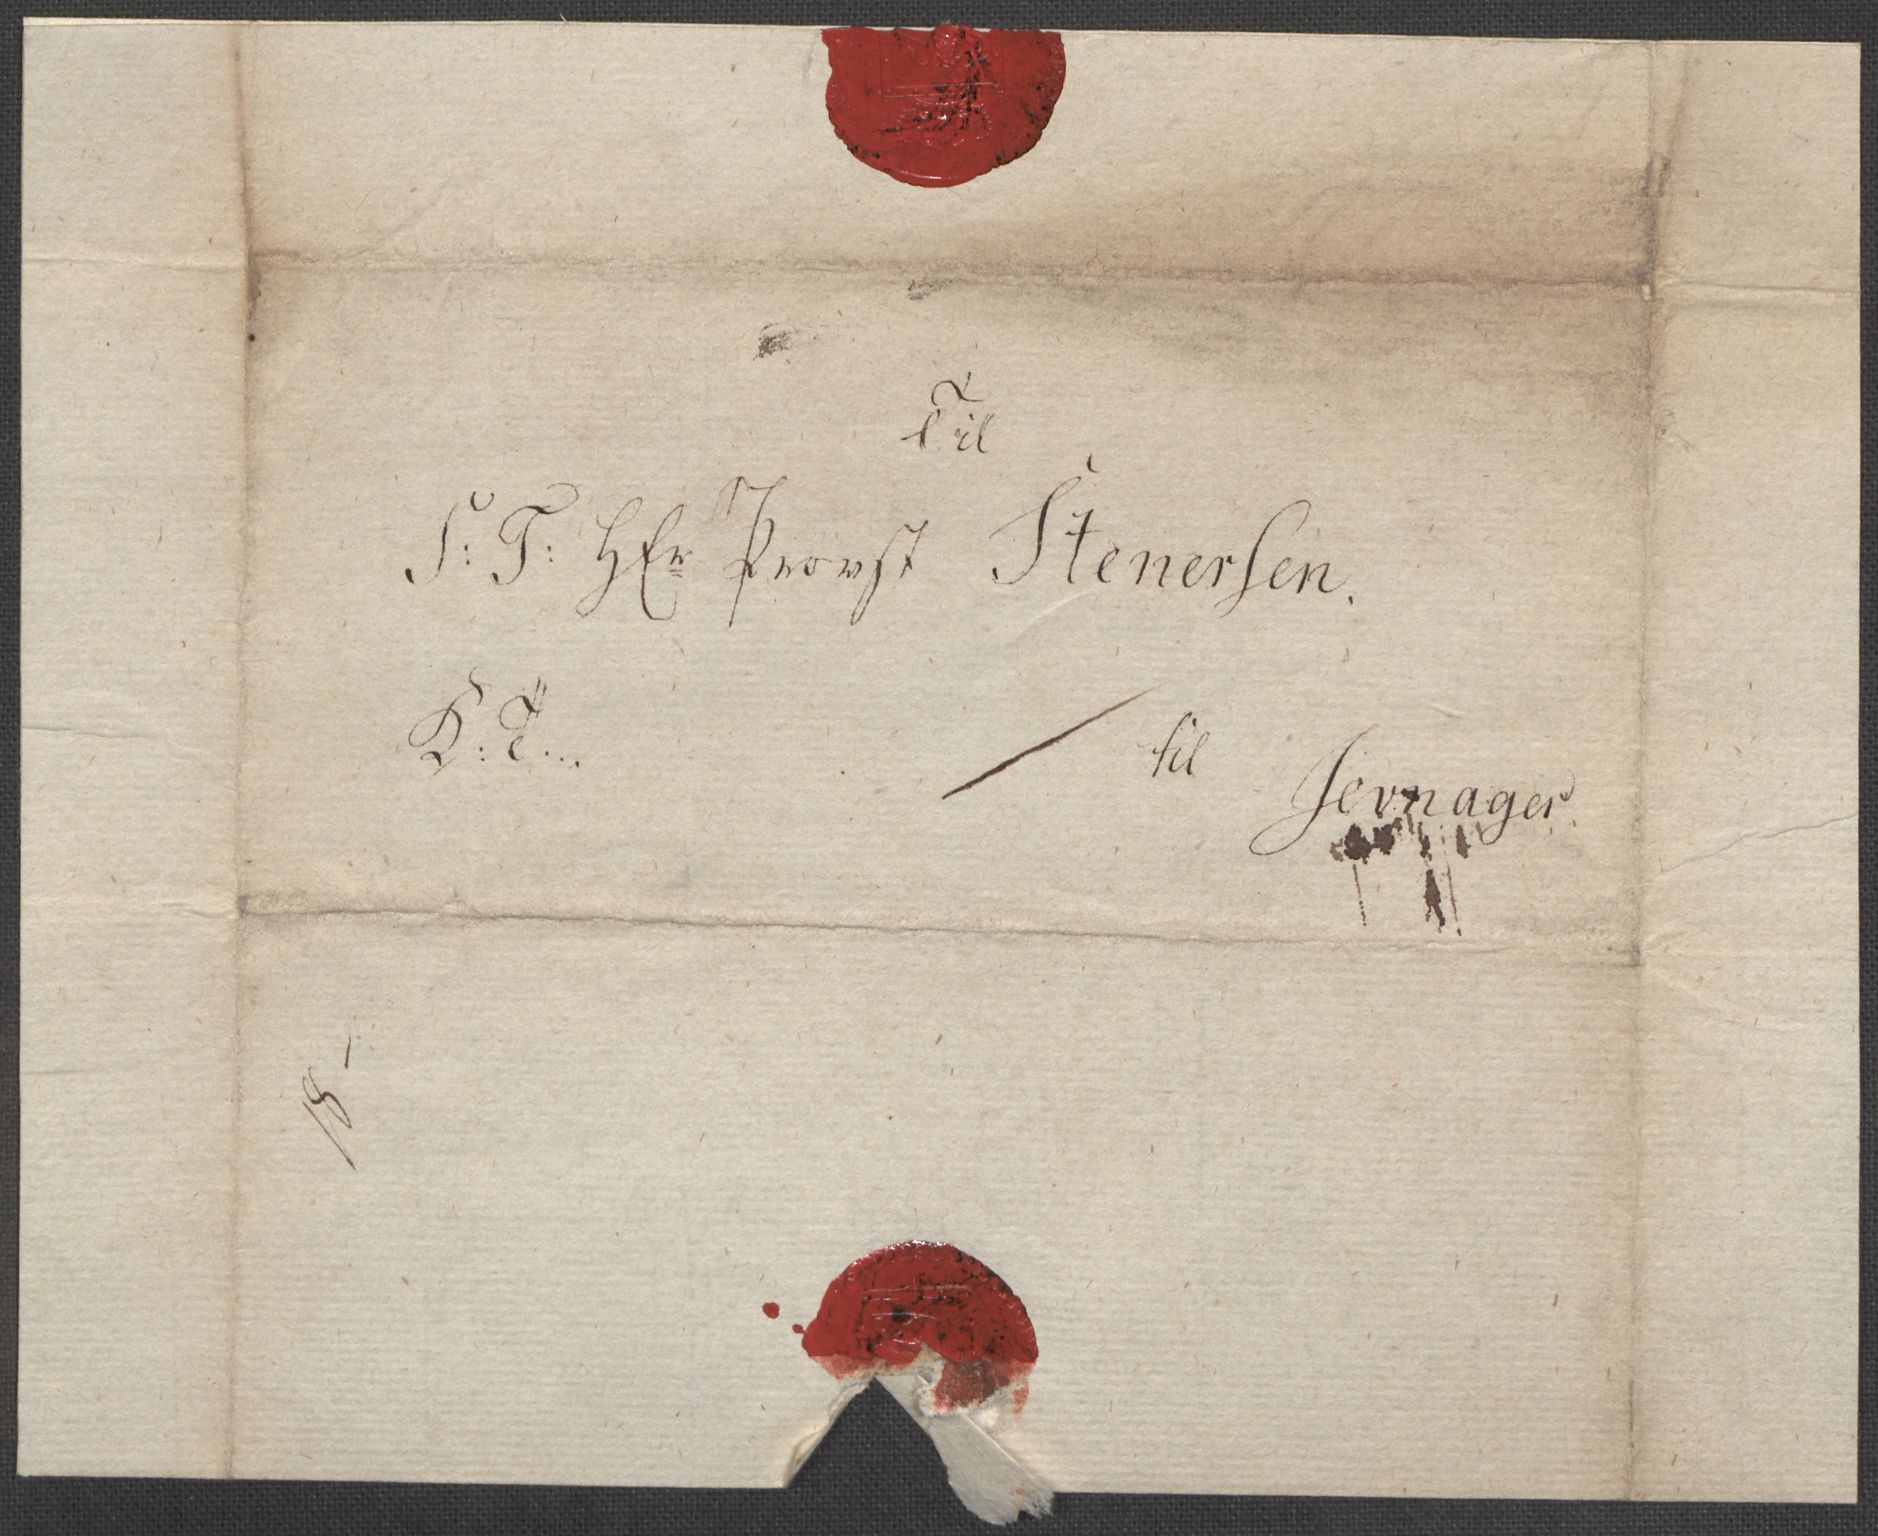 Til
S: T: HEr Provst Stenersen.
K: T...
til Jevnager.
18